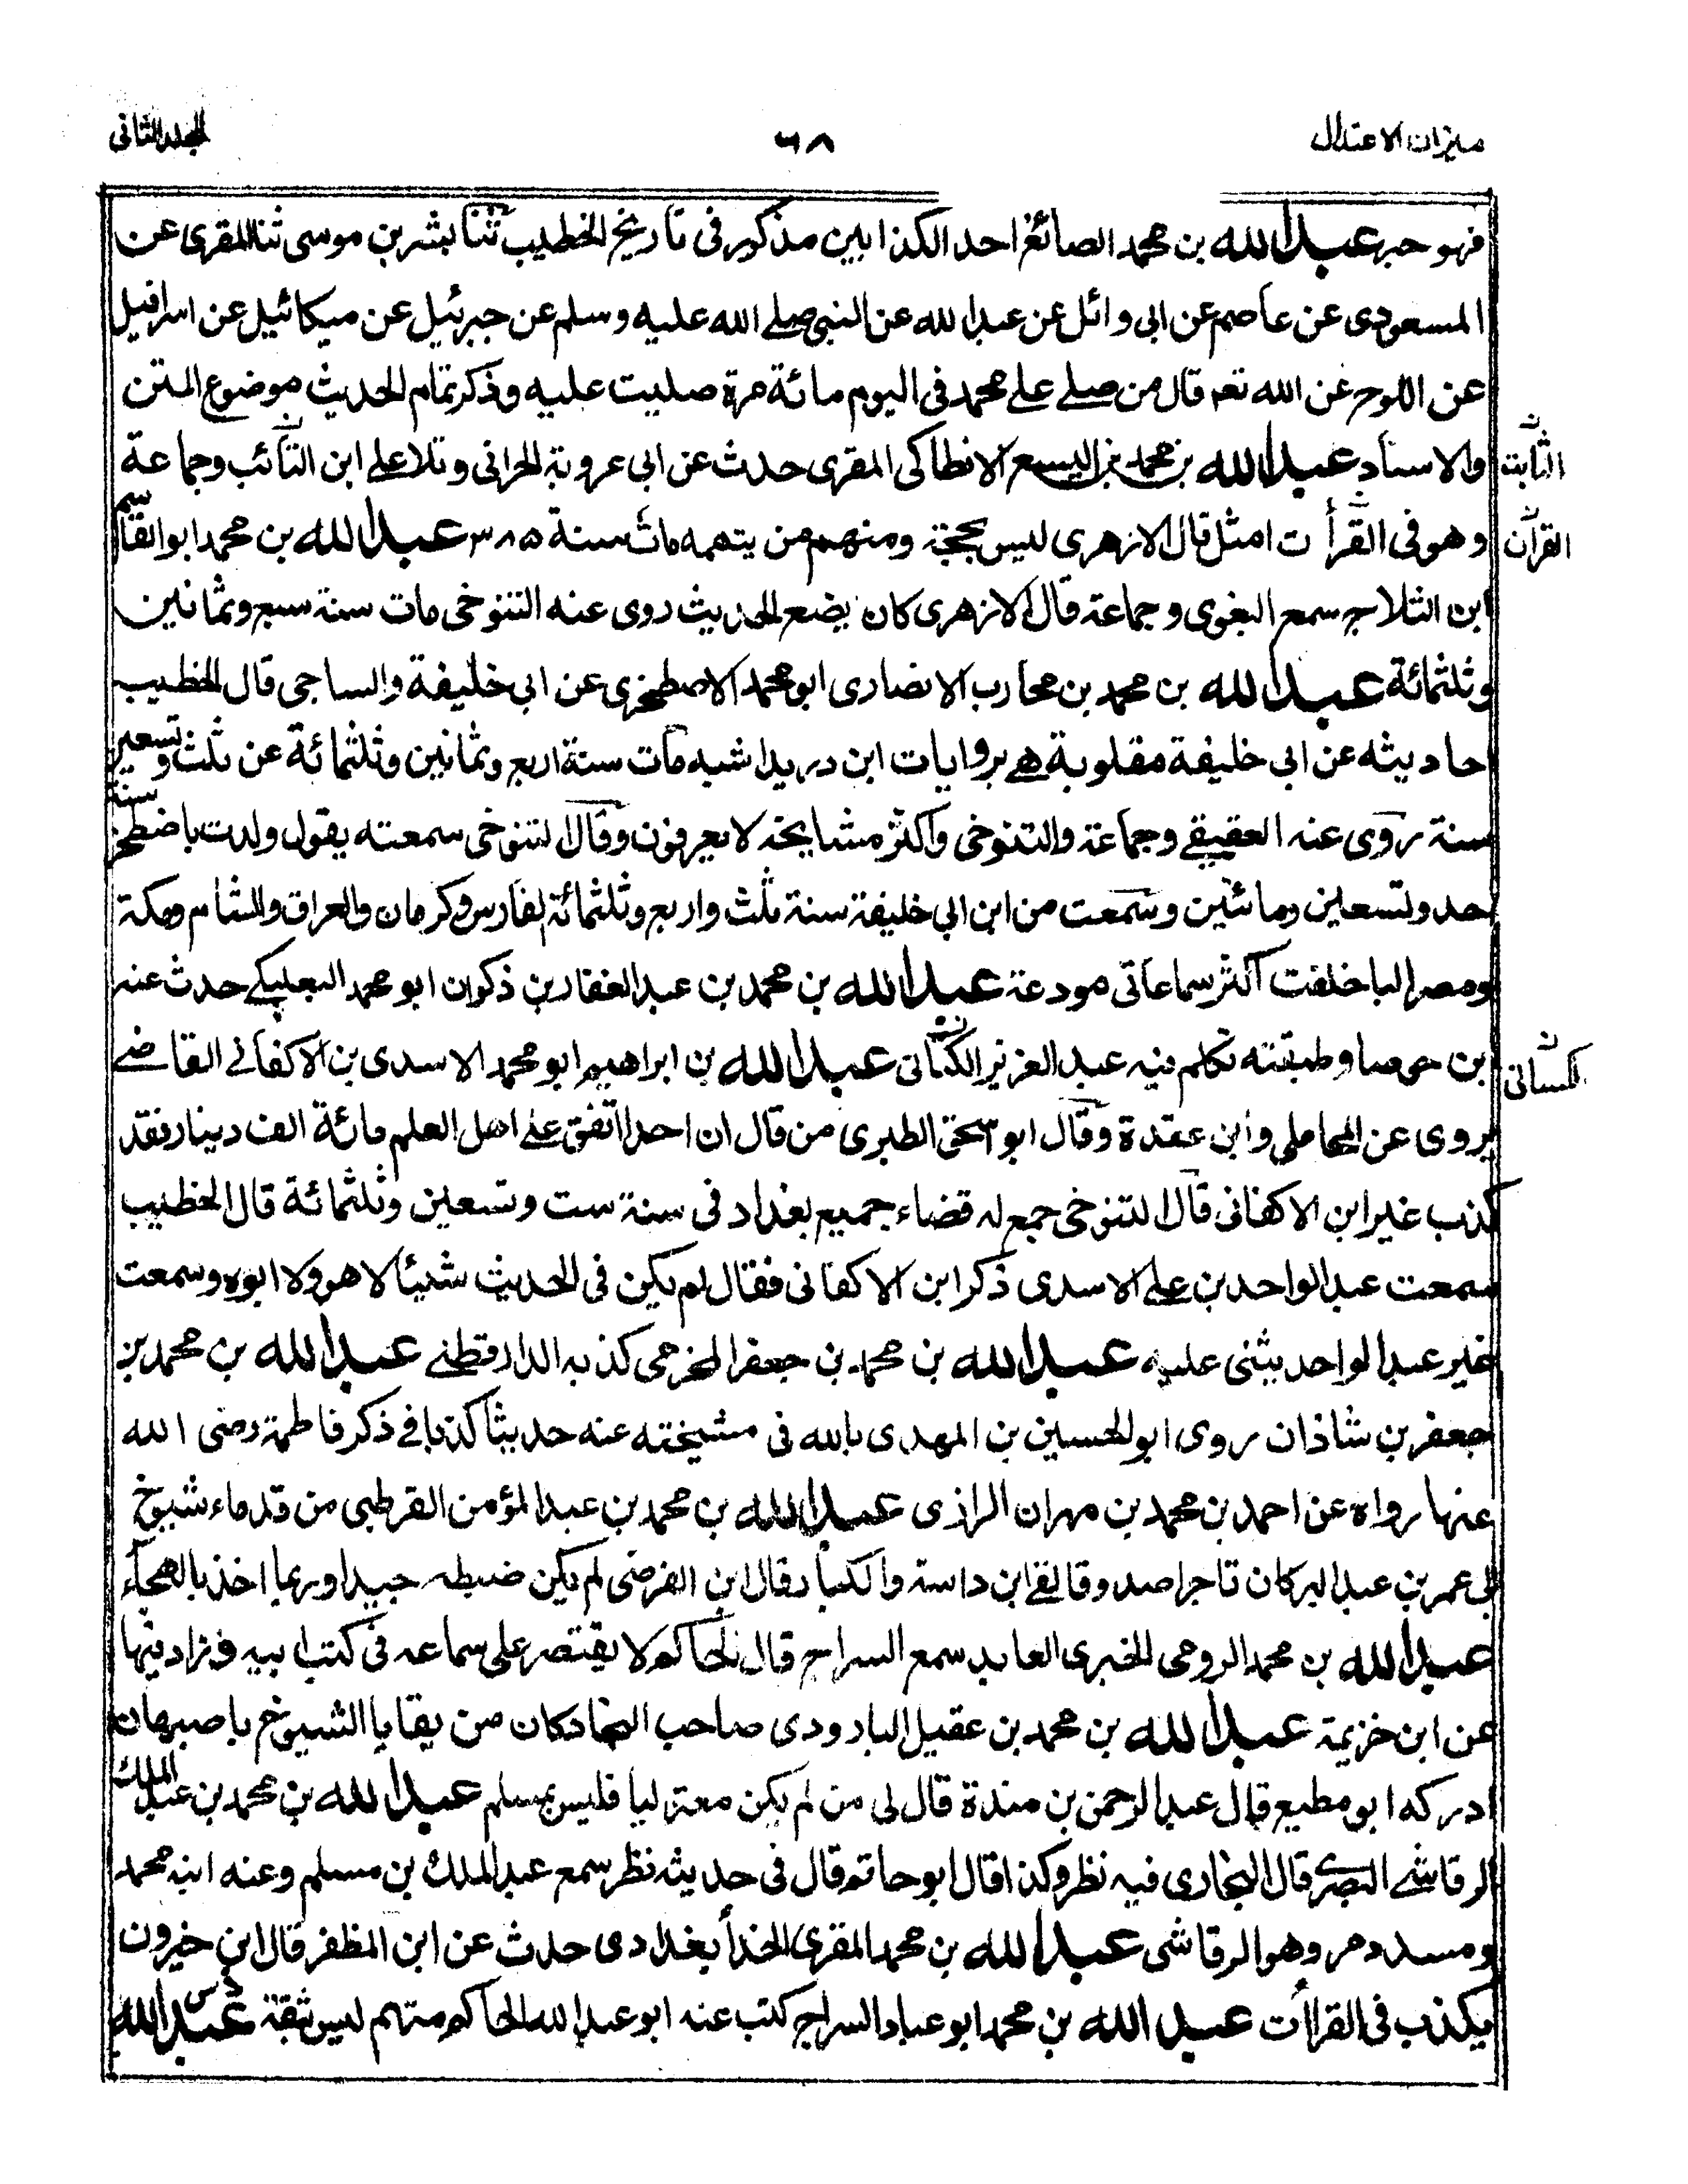 ميزان الاعتدال
٦٨
المجلد الثانى
فهو حبر عبد الله بن محمد الصائغ احد الكذابين مذكور فى تاريخ الخطيب ثنا بشر بن موسى ثنا المقرى عن
المسعودى عن عاصم عن ابى وائل عن عبد الله عن النبى صلے الله عليه وسلم عن جبرئيل عن ميكائيل عن اسرافيل
عن اللوح عن الله تعه قال من صلے علے محمد فى اليوم مائة مرة صليت عليه وذكر تمام الحديث موضوع المتن
والاسناد عبد الله بن محمد بن اليسع الانطاكى المقرى حدث عن ابى عروبة الحرانى وتلا علے ابن التائب وجماعة
الثابت
وهو فى القرأت امثل قال الازهرى ليس بحجة ومنهم من يتهمه مات سنة ٣٨٥ عبد الله بن محمد ابو القاسم
القرآن
ابن الثلاج سمع البغوى وجماعة قال الازهرى كان يضع الحديث روى عنه التنوخى مات سنة سبع وثمانين
وثلثمائة عبد الله بن محمد بن محارب الانصارى ابو محمد الاصطخرى عن ابى خليفة والساجى قال الخطيب
احاديثه عن ابى خليفة مقلوبة هے بروايات ابن دريد اشبه مات سنة اربع وثمانين وثلثمائة عن ثلث وتسعين
سنة روى عنه العقيقے وجماعة والتنوخى واكثر مشايخه لا يعرفون وقال التنوخى سمعته يقول ولدت باصطخر سنة
احد وتسعين ومائتين وسمعت من ابن ابى خليفة سنة ثلث واربع وثلثمائة بفارس وكرمان والعراق والشام ومكة
ومصر البا خلفت اكثر سماعاتى مودعة عبد الله بن محمد بن عبد الغفار بن ذكوان ابو محمد البعلبكے حدث عنه
ابن حمصا وطبقته تكلم فيه عبد العزيز الكتانى عبد الله بن ابراهيم ابو محمد الاسدى بن الاكفانے القاضے
الكسانى
يروى عن المحاملى وابن عقدة وقال ابو اسحق الطبرى من قال ان احدا اتفق علے اهل العلم مائة الف دينار فقد
كذب غير ابن الاكفانى قال التنوخى جمع له قضاء جميع بغداد فى سنة ست وتسعين وثلثمائة قال الخطيب
سمعت عبد الواحد بن علے الاسدى ذكر ابن الاكفانى فقال لم يكن فى الحديث شيئا لا هو ولا ابوه وسمعت
غير عبد الواحد يثنى عليه عبد الله بن محمد بن جعفر المخرمى كذبه الدارقطنے عبد الله بن محمد بن
جعفر بن شاذان روى ابو الحسين بن المهدى بالله فى مشيخته عنه حديثا كذبا فے ذكر فاطمة رضى الله
عنها رواه عن احمد بن محمد بن مهران الرازى عبد الله بن محمد بن عبد المؤمن القرطبى من قدماء شيوخ
ابى عمر بن عبد البر كان تاجرا صدوقا لقے ابن داسة والكبار قال ابن الفرضى لم يكن ضبطه جيدا وربما اخذ بالهجاء
عبد الله بن محمد الرومى الخبرى العابد سمع السراج قال الحاكم لا يقتصر على سماعه فى كتب ابيه فزاد فيها
عن ابن خزيمة عبد الله بن محمد بن عقيل البارودى صاحب النجاد كان من بقايا الشيوخ باصبهان
ادركه ابو مطيع قال عبد الرحمن بن مندة قال لى من لم يكن معتزليا فليس بمسلم عبد الله بن محمد بن عبد الملك
الرقاشے البصرى قال البخارى فيه نظر وكذا قال ابو حاتم قال فى حديثه نظر سمع عبد الملك بن مسلم وعنه ابنه محمد
ومسدد مر وهو الرقاشى عبد الله بن محمد المقرى الحذأ بغدادى حدث عن ابن المظفر قال ابن خيرون
يكذب فى القراأت عبد الله بن محمد ابو عباد السراج كتب عنه ابو عبد الله الحاكم متهم ليس بثقة عبد الله